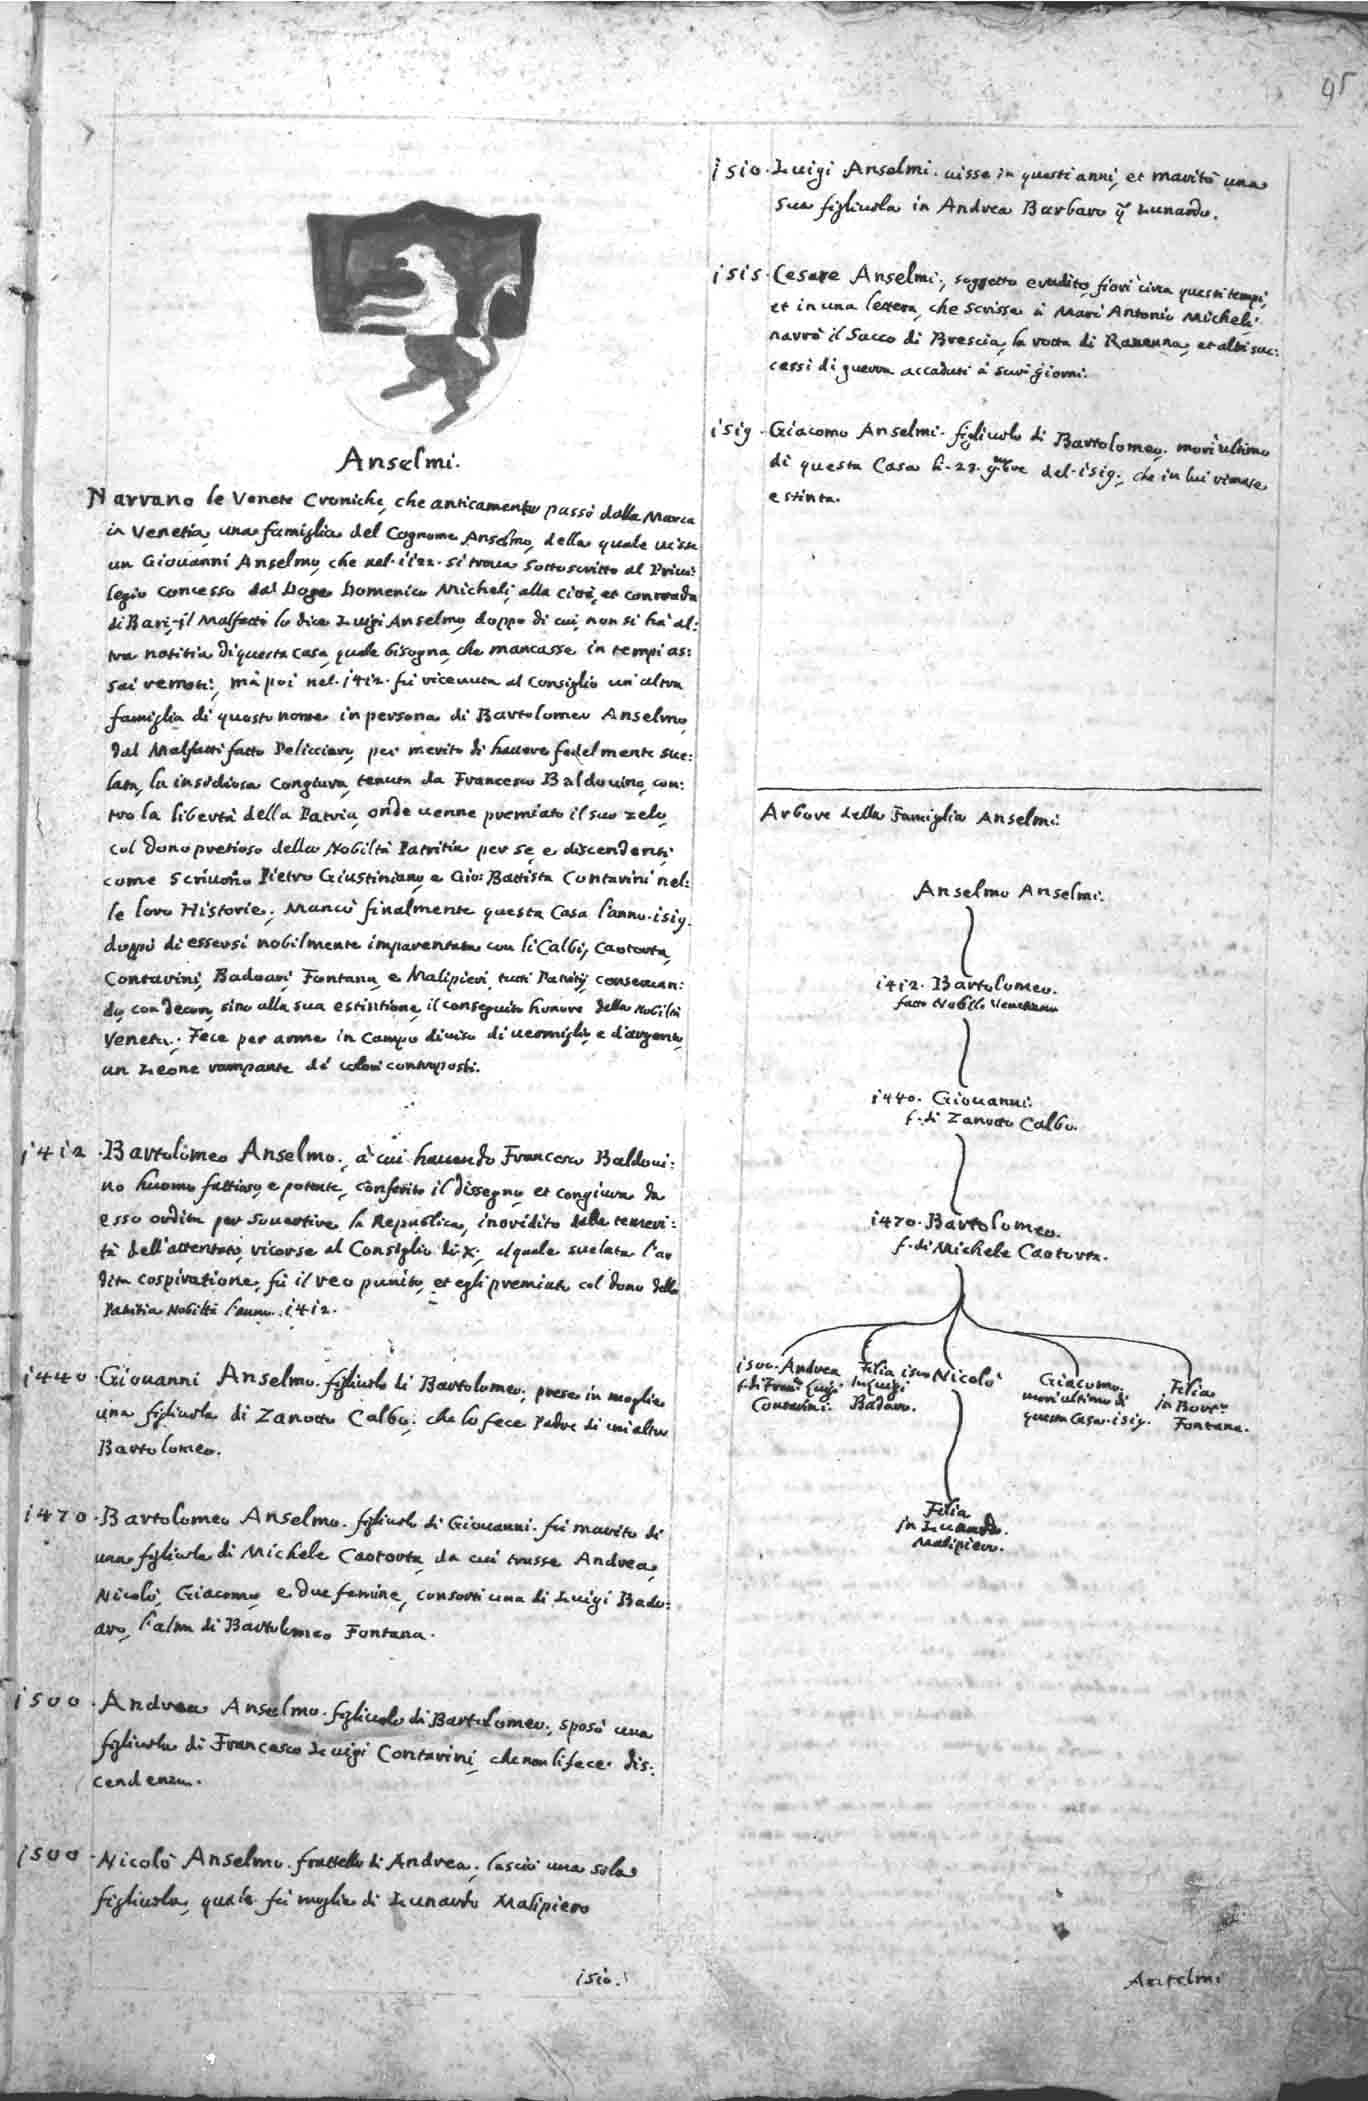 95
Anselmi.
Narrano le Venete Croniche, che anticamente passò dalla Marca
in Venetia, una famiglia del Cognome Anselmo, della quale uisse
un Giouanni Anselmo, che nel. 1122. si troua sottoscritto al Priui:
legio concesso dal Doge Domenico Micheli, alla città, et contrada
di Bari, il Malfatti lo dice Luigi Anselmo, doppo di cui, non si hà al:
tra notitia di questa casa, quale bisogna, che mancasse in tempi as:
sai remoti; mà poi nel. 1412. fù riceuuta al Consiglio un'altra
famiglia di questo nome in persona di Bartolomeo Anselmo,
dal Malfatti fatto Pelicciaro, per merito di hauere fedelmente sue:
lata, la insidiosa Congiura, tenuta da Francesco Baldouino, con:
tro la libertà della Patria, onde uenne premiato il suo zelo,
col dono pretioso della Nobiltà Patritia per se, e discendenti,
come scriuono Pietro Giustiniano, e Gio: Battista Contarini nel:
le loro Historie; Mancò finalmente questa Casa l'anno. 1519.
doppò di essersi nobilmente imparentata con li Calbi, Caotorta,
Contarini, Badoari, Fontana, e Malipieri, tutti Patritij, conseruan:
do, con decoro, sino alla sua estintione, il conseguito honore della Nobiltà
Veneta; Fece per arme in Campo diuiso di uermiglio, e d'argento,
un Leone rampante de' colori contraposti.
1412 . Bartolomeo Anselmo, à cui hauendo Francesco Baldoui:
no huomo fattioso, e potente, conferito il dissegno, et congiura da
esso ordita per souertire la Republica, inoridito dalla temeri:
tà dell'attentato, ricorse al Consiglio di .X., al quale suelata l'ar
dita cospiratione, fù il reo punito, et egli premiato col dono della
Patritia Nobiltà l'anno. 1412.
1440 . Giouanni Anselmo. figliuolo di Bartolomeo, prese in moglie
una figliuola di Zanotto Calbo, che lo fece Padre di un'altro
Bartolomeo.
1470 . Bartolomeo Anselmo. figliuolo di Giouanni. fù marito di
una figliuola di Michele Caotorta, da cui trasse Andrea,
Nicolò, Giacomo, e due femine, consorti una di Luigi Bado:
aro, l'altra di Bartolomeo Fontana.
1500 . Andrea Anselmo. figliuolo di Bartolomeo, sposò una
figliuola di Francesco Luigi Contarini, che non li fece dis:
cendenza.
1500 . Nicolò Anselmo. fratello di Andrea, lasciò una sola
figliuola, quale fù moglie di Lunardo Malipiero
1510.
1510. Luigi Anselmi. uisse in questi anni, et maritò una
sua figliuola in Andrea Barbaro q. Lunardo.
1515. Cesare Anselmi, soggetto erudito, fiorì circa questi tempi,
et in una lettera, che scrisse à Marc'Antonio Micheli,
narrò il Sacco di Brescia, la rotta di Rauenna, et altri suc:
cessi di guerra accaduti à suoi giorni.
1519 . Giacomo Anselmi. figliuolo di Bartolomeo. morì ultimo
di questa Casa li. 23. 9mbre del. 1519., che in lui rimase
estinta.
Arbore della Famiglia Anselmi.
Anselmo Anselmi.
1412. Bartolomeo.
fatto Nobile Venetiano
1440. Giouanni.
f. di Zanotto Calbo.
1470. Bartolomeo.
f. di Michele Caotorta.
1500. Andrea
f. di Franco Luigi
Contarini.
Filia
in Luigi
Badoaro.
1500 Nicolò
Giacomo.
morì ultimo di
questa Casa. 1519.
Filia
in Bortº
Fontana.
Filia
in Lunardo.
Malipiero.
Antelmi